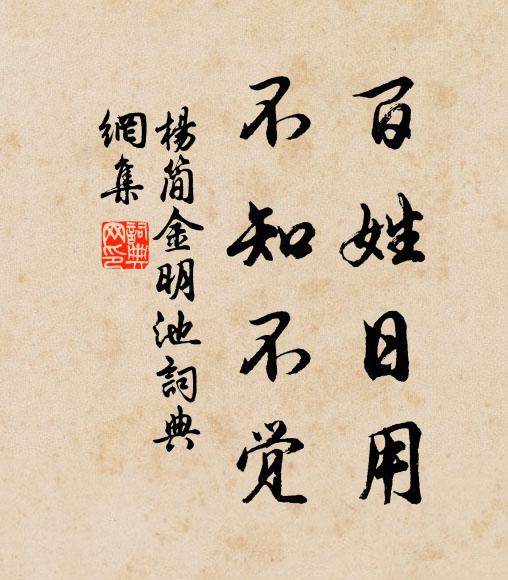 百姓日用
不知不觉
楊简金明池詞典
網集
詞典
网印